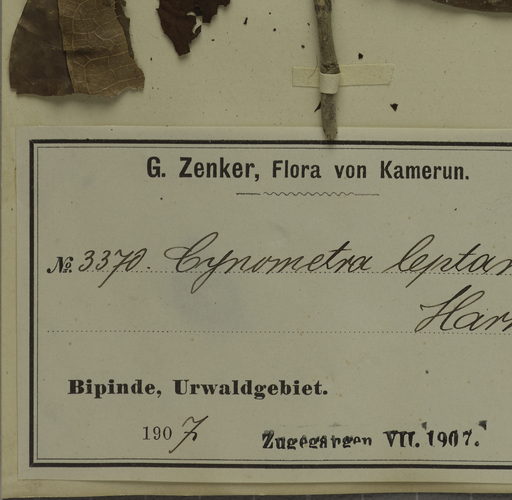 G. Zenker, Flora von Kamerun.
No. 3370. Cynometra leptan
Har
Bipinde, Urwaldgebiet.
1907
Zugegangen VII. 1907.